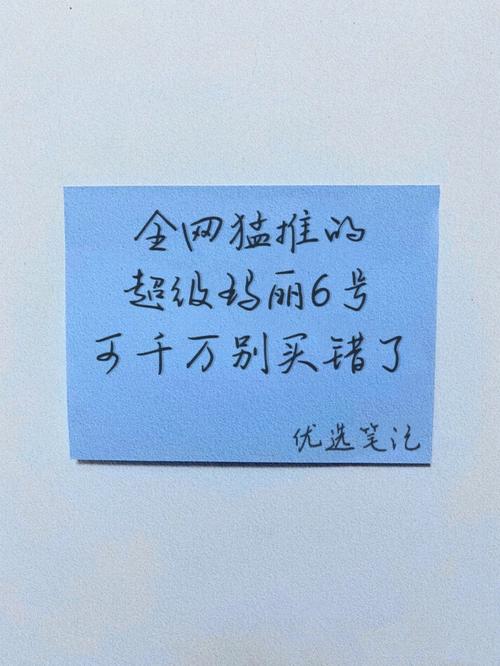 全网猛推的
超级玛丽6号
可千万别买错了
优选笔记